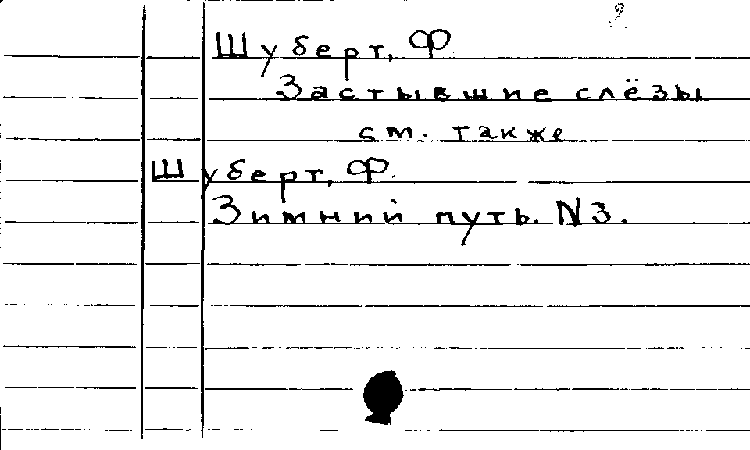 Шуберт, Ф.
Застывшие слёзы
см. также
Шуберт, Ф.
Зимний путь. N3.